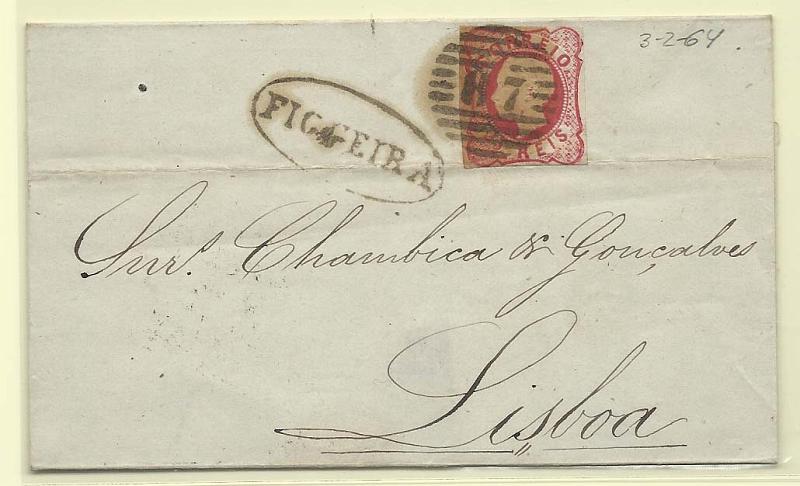 3-2-64.
CORREIO
REIS
FIGUEIRA
Snrs. Chambica & Gonçalves
Lisboa